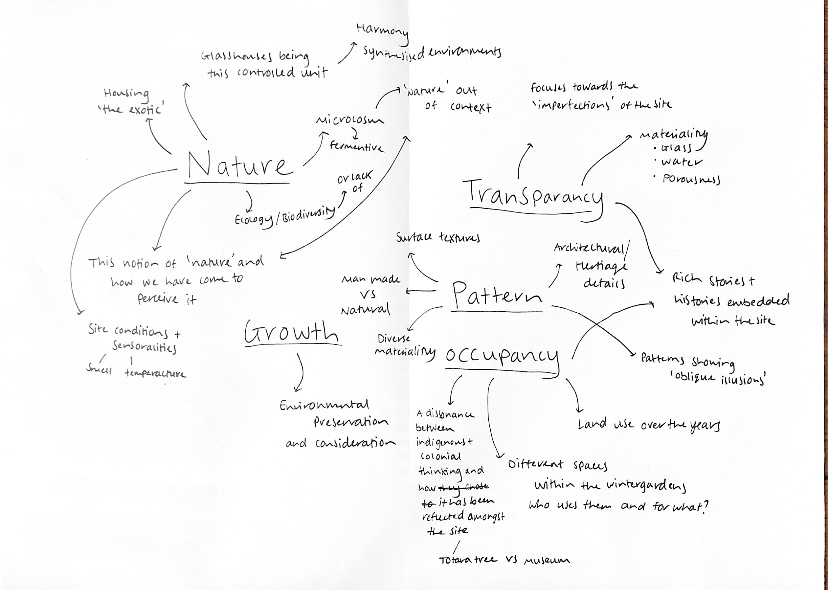 Harmony
Synthesised environments
Glasshouses being
this controlled unit
Housing
'the exotic'
'Nature' out
of context
Microcosm
fermentive
Nature
or lack
of
Ecology/Biodiversity
This notion of 'nature' and
how we have come to
perceive it
Site conditions +
Sensoralities
Smell temperature
Growth
Environmental
Preservation
and consideration
Focuses towards the
'imperfections' of the site
Materiality
• Glass
• Water
• Porousness
Transparancy
Rich stories +
histories embedded
within the site
Surface textures
Architectural/
Heritage
details
Man made
vs
Natural
Pattern
Diverse
materiality
Patterns showing
'oblique illusions'
Occupancy
Land use over the years
Different spaces
within the wintergardens
who uses them and for what?
A dissonance
between
indigenous +
colonial
thinking and
how they chose
to it has been
reflected amongst
the site
Totara tree vs museum